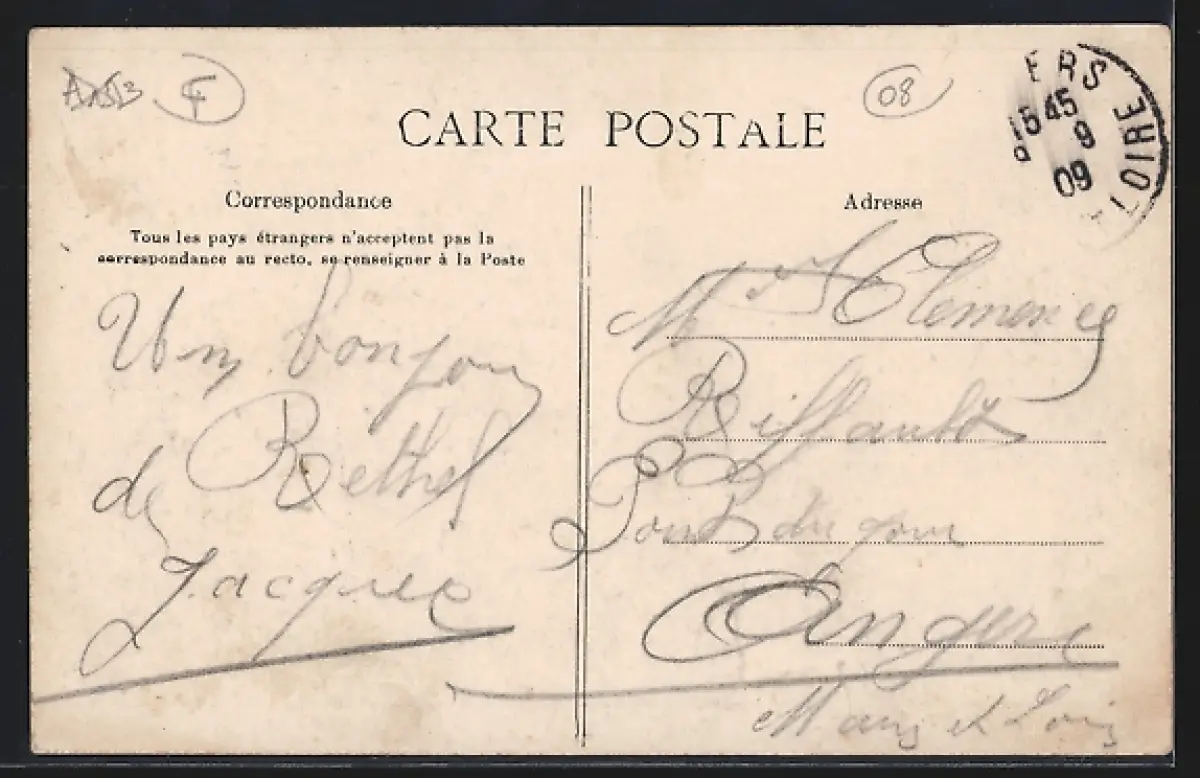 F
08
ERS
LOIRE
45
9
09
CARTE POSTALE
Correspondance
Tous les pays étrangers n'acceptent pas la
correspondance au recto, se renseigner à la Poste
Un bonjour
de Rethel
Jacques
Adresse
Clémence
Riffault
du jour
Angers
Maine et Loire